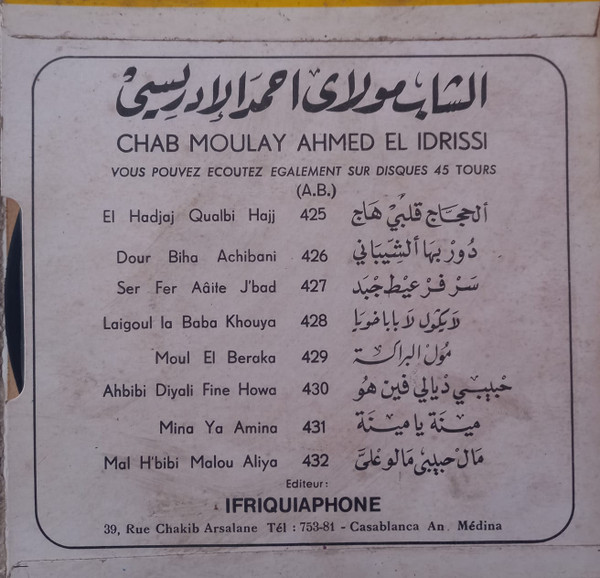 الشاب مولاي احمد الإدريسي
CHAB MOULAY AHMED EL IDRISSI
VOUS POUVEZ ECOUTEZ EGALEMENT SUR DISQUES 45 TOURS
(A.B.)
El Hadjaj Qualbi Hajj 425 ألحجاج قلبي هاج
Dour Biha Achibani 426 دور بها ألشيباني
Ser Fer Aâite J'bad 427 سر فر عيط جبد
Laigoul la Baba Khouya 428 لايكول لابابا خويا
Moul El Beraka 429 مول البراكة
Ahbibi Diyali Fine Howa 430 حبيبي ديالي فين هو
Mina Ya Amina 431 مينة يا مينة
Mal H'bibi Malou Aliya 432 مال حبيبي مالو عليَّ
Editeur:
IFRIQUIAPHONE
39, Rue Chakib Arsalane Tél : 753-81 - Casablanca An. Médina